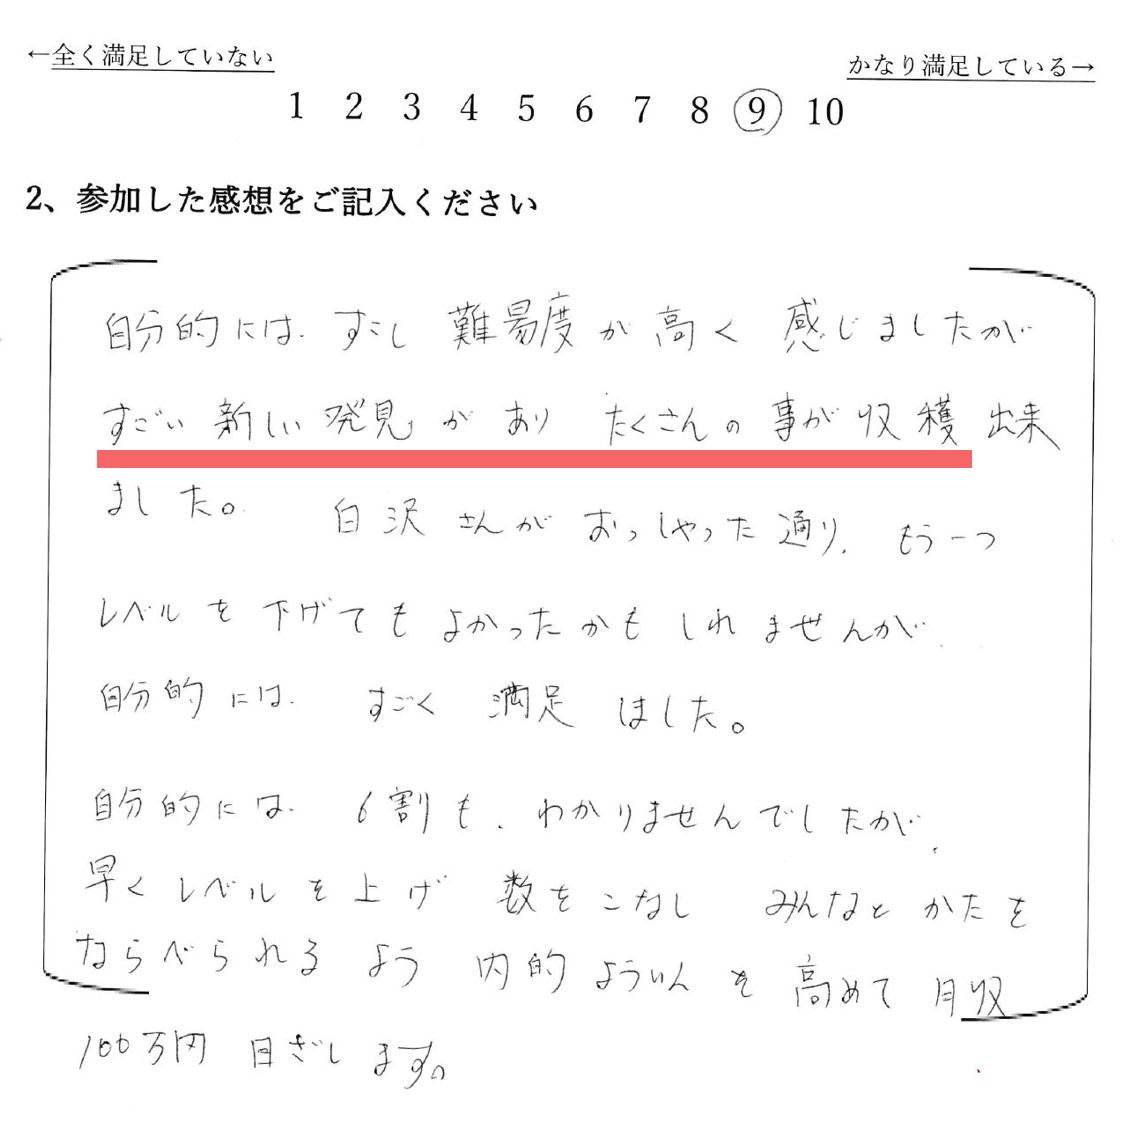 ←全く満足していない
かなり満足している→
1 2 3 4 5 6 7 8 9 10
2、参加した感想をご記入ください
自分的には、すこし 難易度が高く 感じましたが
すごい新しい発見があり たくさんの事が収穫出来
ました。 白沢さんがおっしゃった通り、もう一つ
レベルを下げてもよかったかもしれませんが、
自分的には、すごく 満足 はました。
自分的には、6割も、わかりませんでしたが、
早くレベルを上げ 数をこなし みんなとかたを
ならべられるよう 内的よういんを高めて月収
100万円 目ざします。